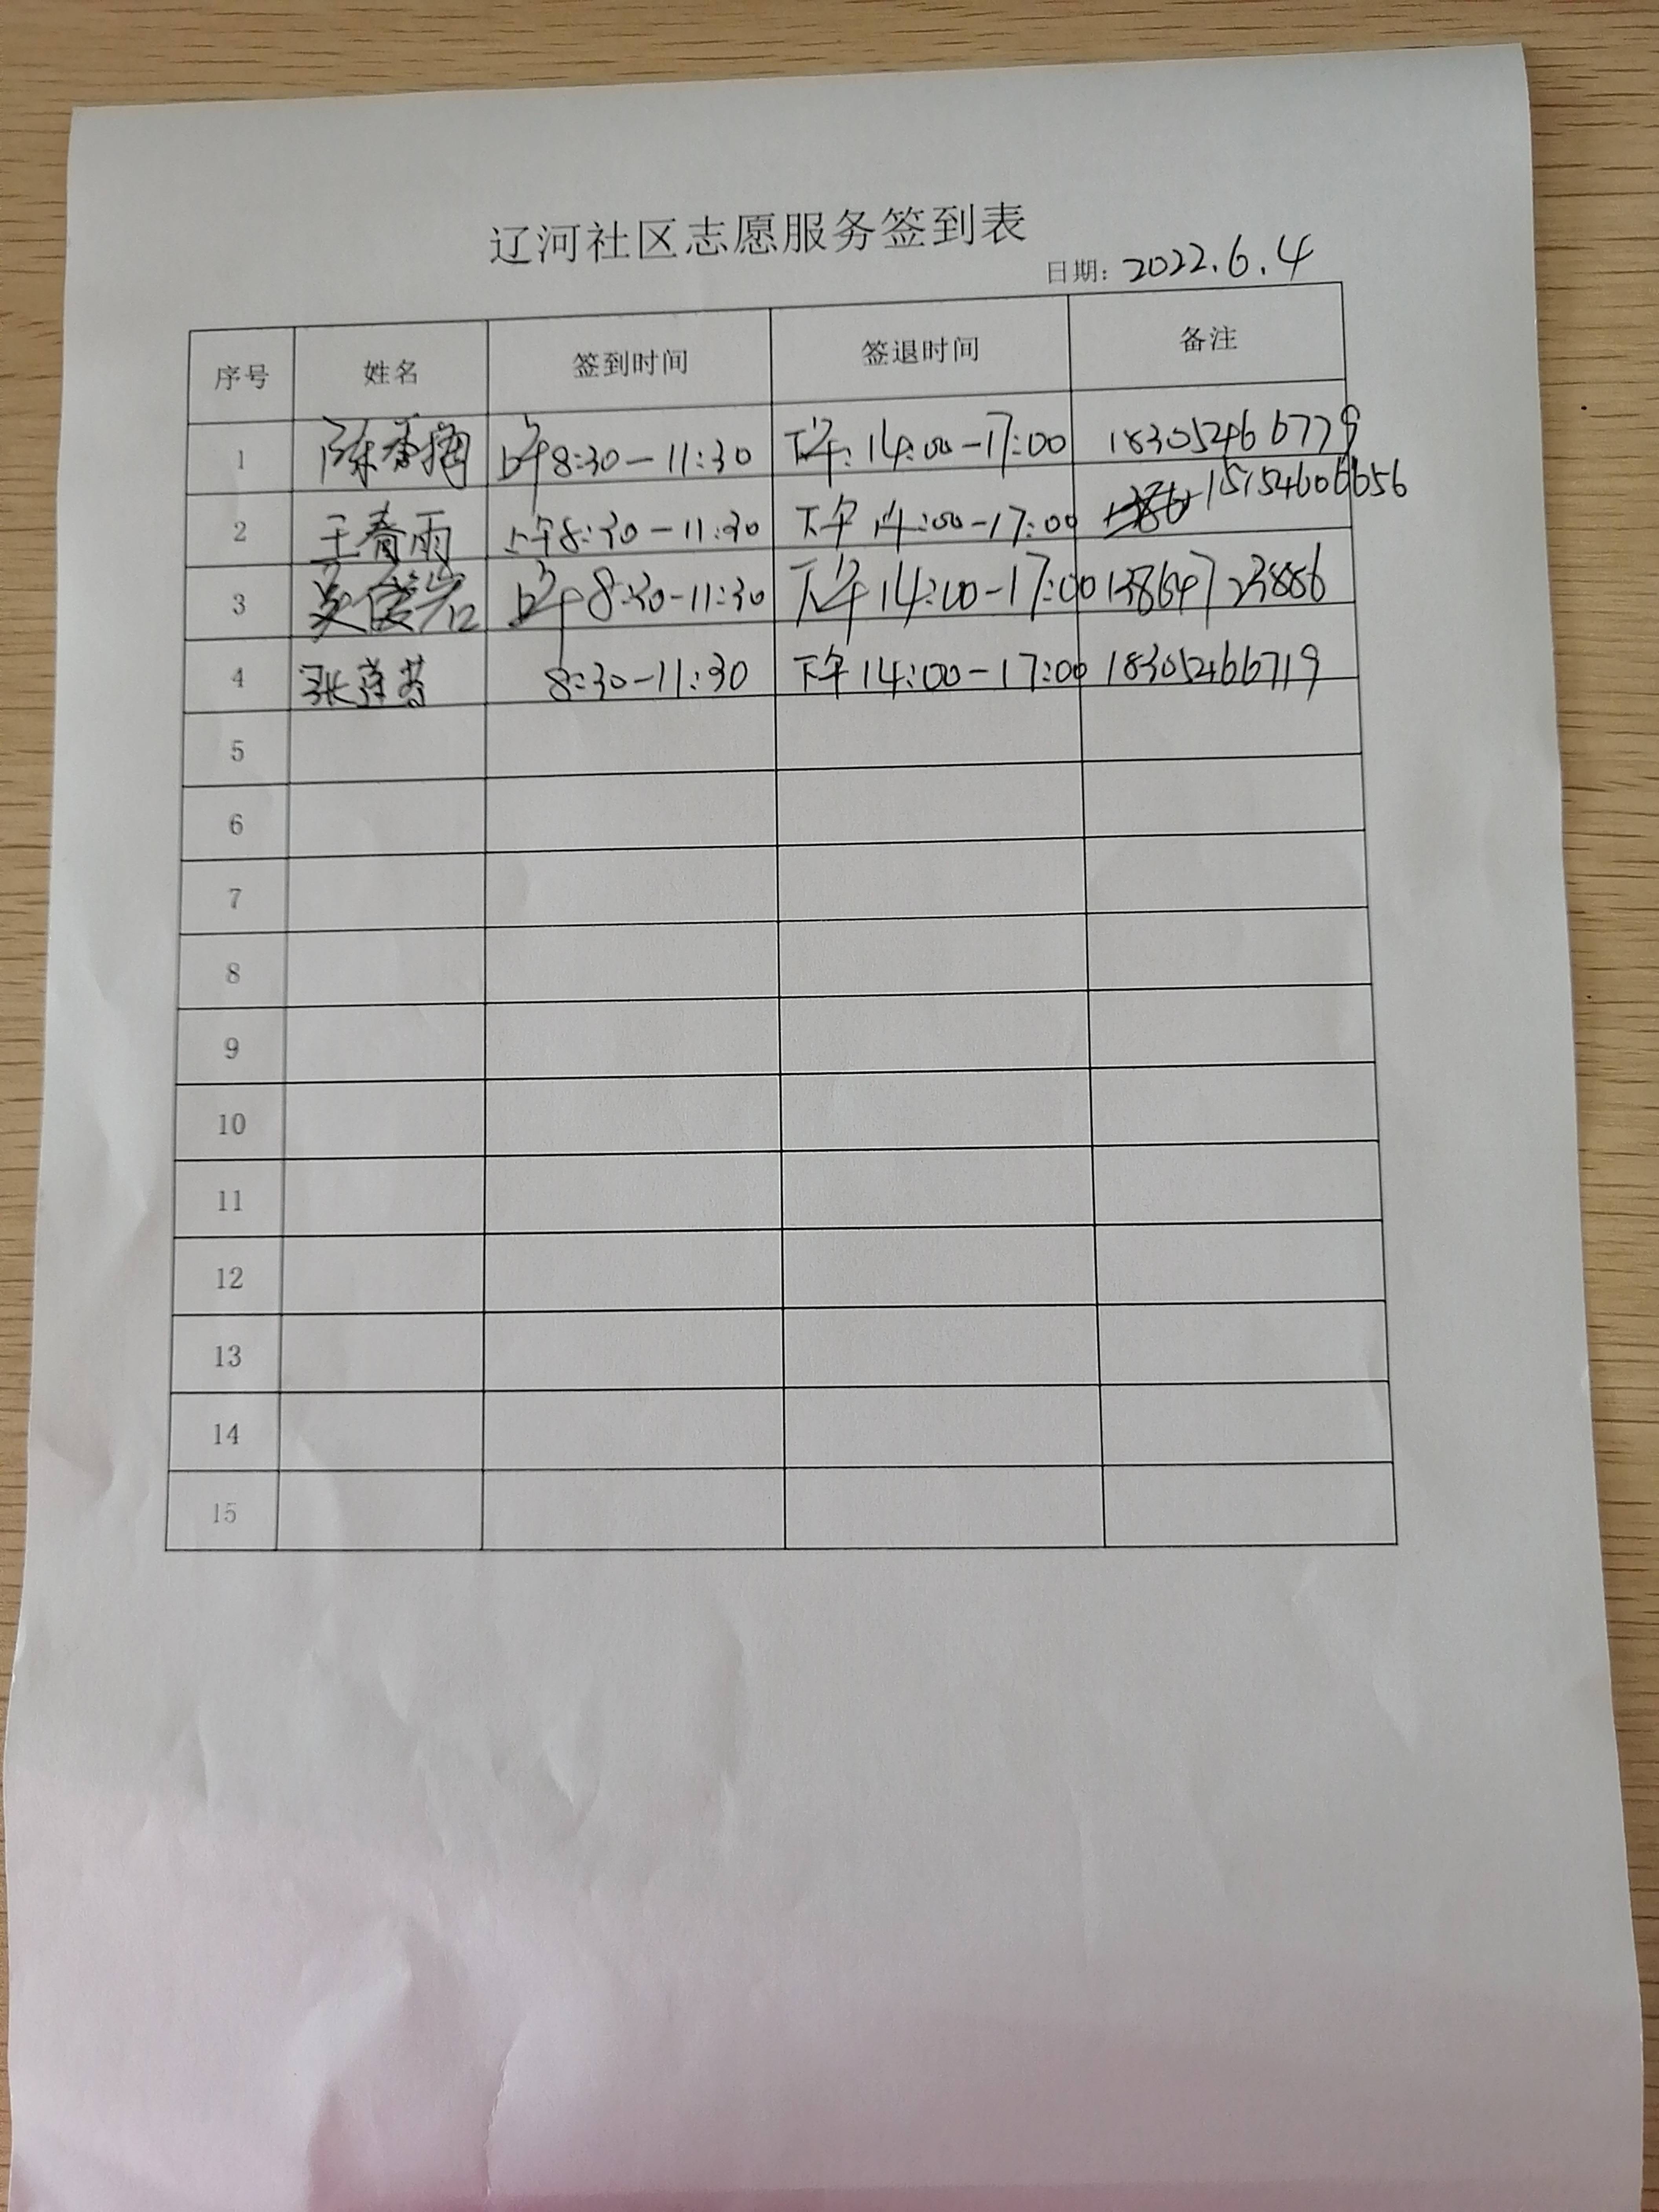 辽河社区志愿服务签到表
日期: 2022.6.4
序号 姓名 签到时间 签退时间 备注
1 陈香梅 上午8:30-11:30 下午:14:00-17:00 18305466779
2 王春雨 上午8:30-11:30 下午14:00-17:00 15154606656
3 上午8:30-11:30 下午14:00-17:00 13864723886
4 张 8:30-11:30 下午14:00-17:00 18305466719
5
6
7
8
9
10
11
12
13
14
15